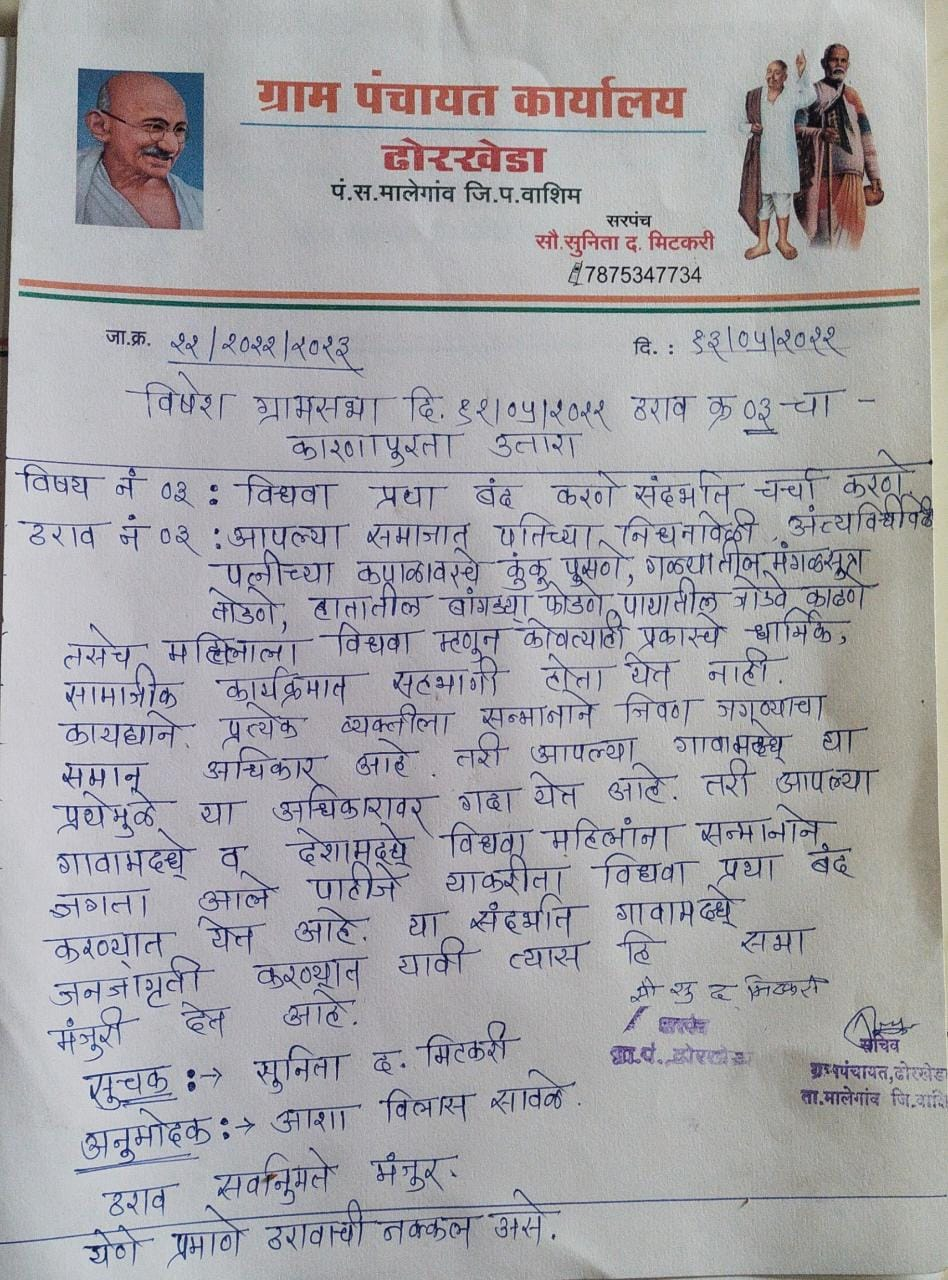 ग्राम पंचायत कार्यालय
ढोरखेडा
पं.स.मालेगांव जि.प.वाशिम
सरपंच
सौ.सुनिता द. मिटकरी
7875347734
जा.क्र. २२/२०२२/२०२३
दि. : १३/०५/२०२२
विषेश ग्रामसभा दि. १२/०५/२०२२ ठराव क्र ०३ चा -
कारणापुरता उतारा
विषय नं ०३ : विधवा प्रथा बंद करणे संदर्भात चर्चा करणे
ठराव नं ०३ : आपल्या समाजात पतिच्या निधनावेळी अंत्यविधीवेळी
पत्नीच्या कपाळावरचे कुंकू पूसणे, गळ्यातील मंगळसूत्र
तोडणे, हातातील बांगड्या फोडणे, पायातील जोडवे काढणे
तसेच महिलाला विधवा म्हणून कोणत्याही प्रकारचे धार्मिक,
सामाजीक कार्यक्रमात सहभागी होता येत नाही.
कायद्याने प्रत्येक व्यक्तीला सन्मानाने जिवन जगण्याचा
समान अधिकार आहे. तरी आपल्या गावामदध्ये या
प्रथेमुळे या अधिकारावर गदा येत आहे. तरी आपल्या
गावामदध्ये व देशामदध्ये विधवा महिलांना सन्मानाने
जगता आले पाहीजे याकरीता विधवा प्रथा बंद
करण्यात येत आहे. या संदर्भात गावामदध्ये
जनजागृती करण्यात यावी त्यास हि सभा
मंजुरी देत आहे.
सौ सु द मिटकरी
सरपंच
ग्रा.पं. ढोरखेडा
सचिव
ग्रामपंचायत, ढोरखेडा
ता.मालेगांव जि.वाशि
सूचक :→ सुनिता द. मिटकरी
अनूमोदक :→ आशा विलास सावळे.
ठराव सर्वानुमते मंजुर.
येणे प्रमाणे ठरावाची नक्कल असे.